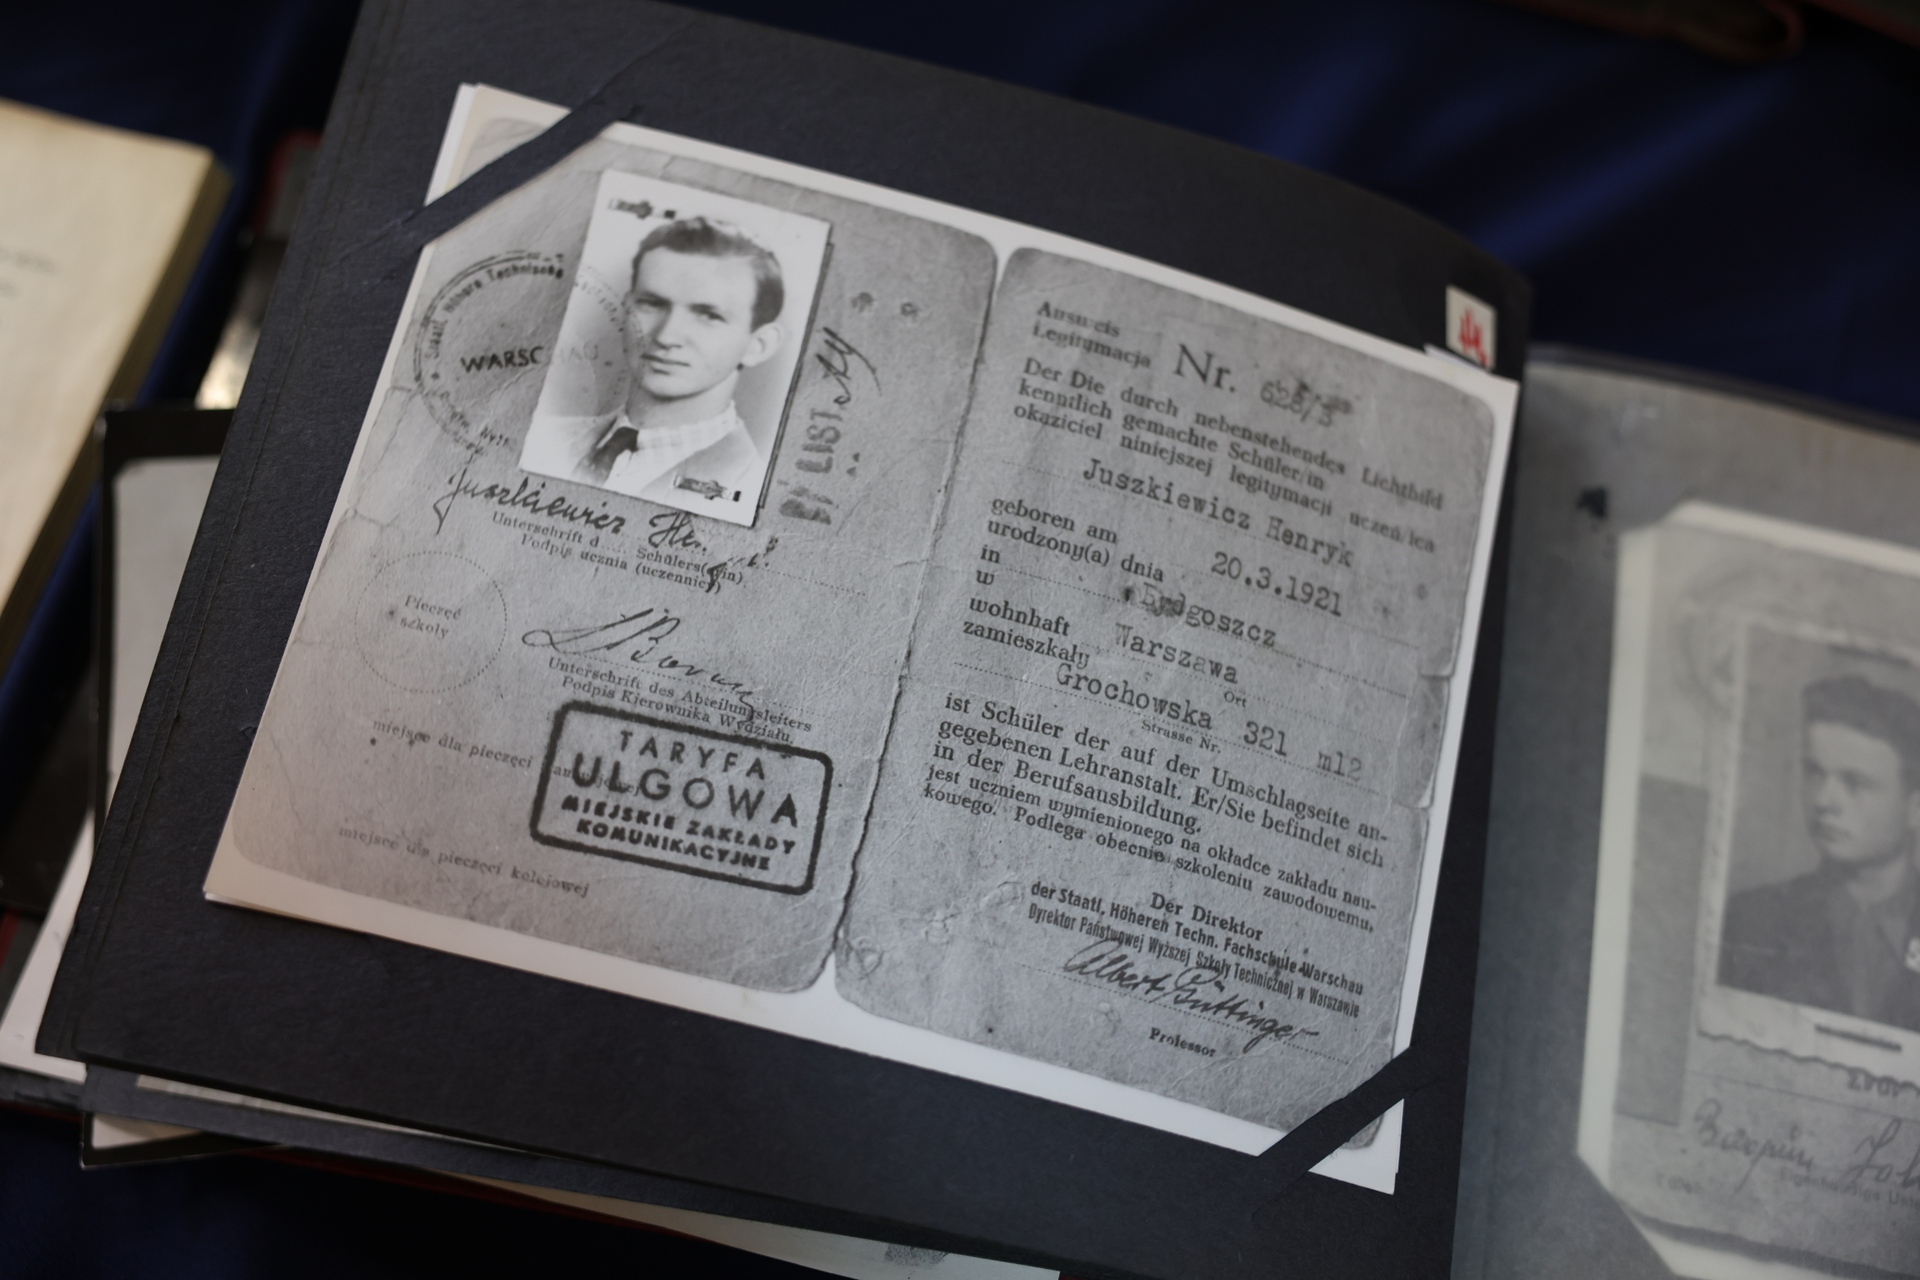 Staatl. Höhere Technische
WARSCHAU
Juszkiewicz
Unterschrift d... Schülers(in)
Podpis ucznia (uczennicy)
Pieczęć
szkoły
Unterschrift des Abteilungsleiters
Podpis Kierownika Wydziału.
miejsce dla pieczęci
TARYFA
ULGOWA
MIEJSKIE ZAKŁADY
KOMUNIKACYJNE
miejsce dla pieczęci kolejowej
Ausweis
Legitymacja Nr. 628/3
Der Die durch nebenstehendes Lichtbild
kenntlich gemachte Schüler/in
okaziciel niniejszej legitymacji uczeń/ica
Juszkiewicz Henryk
geboren am
urodzony(a) dnia 20.3.1921
in
w Bydgoszcz
wohnhaft
zamieszkały Warszawa
Ort
Grochowska 321 m12
Strasse Nr.
ist Schüler der auf der Umschlagseite an-
gegebenen Lehranstalt. Er/Sie befindet sich
in der Berufsausbildung.
jest uczniem wymienionego na okładce zakładu nau-
kowego. Podlega obecnie szkoleniu zawodowemu.
Der Direktor
der Staatl. Höheren Techn. Fachschule Warschau
Dyrektor Państwowej Wyższej Szkoły Technicznej w Warszawie
Albert Güttinger
Professor